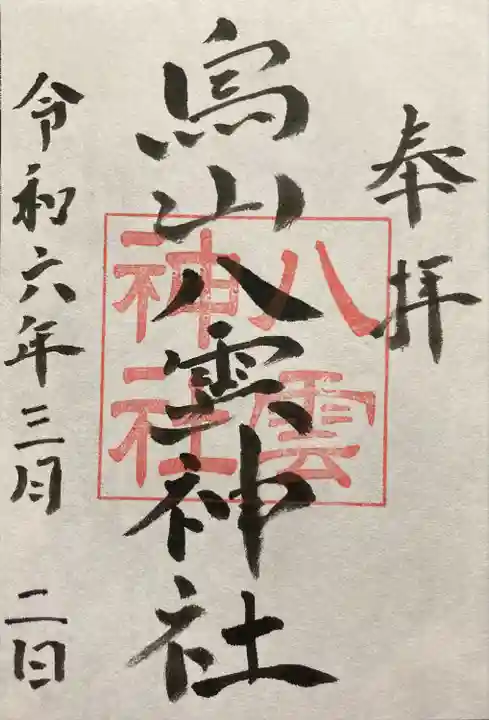 奉拝
烏山八雲神社
八雲
神社
令和六年三月 二日